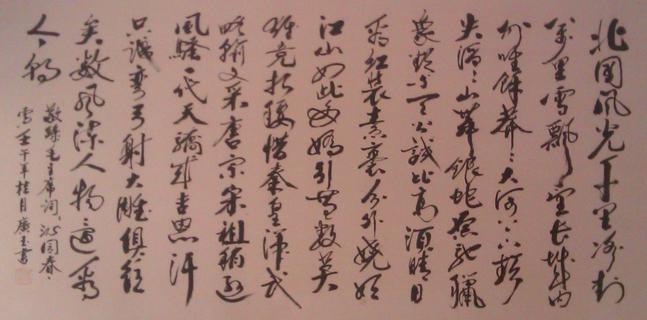 北国風光千里冰封
萬里雪飘望长城内
外惟餘莽〻大河上下頓
失滔〻山舞银蛇原馳蠟
象欲与天公試比高須晴日
看红装素裹分外嬈妖
江山如此多嬌引無数英
雄竞折腰惜秦皇漢武
略输文采唐宗宋祖稍逊
風騷一代天驕成吉思汗
只識弯弓射大雕俱往
矣数風流人物還看
今朝
敬録毛主席詞沁園春
雪壬午年桂月廣玉書